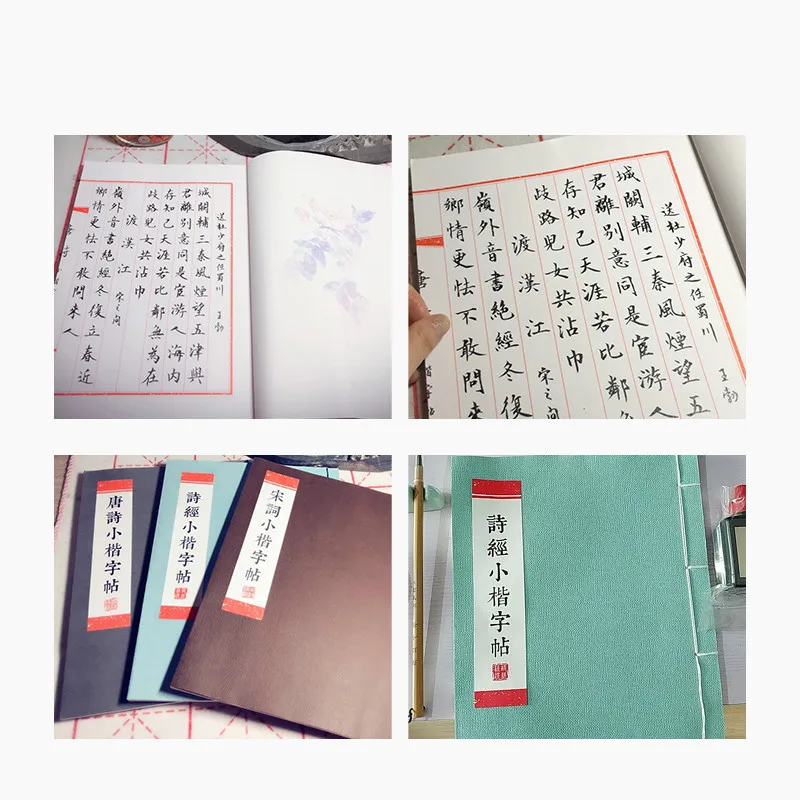 送杜少府之任蜀川 王勃
城闕輔三秦風煙望五津與
君離別意同是宦游人海內
存知己天涯若比鄰無為在
歧路兒女共沾巾
渡漢江 宋之问
嶺外音書絕經冬復立春近
鄉情更怯不敢問來人
送杜少府之任蜀川 王勃
城闕輔三秦風煙望五
君離別意同是宦游人
存知己天涯若比鄰無
歧路兒女共沾巾
渡漢江 宋之问
嶺外音書絕經冬復
鄉情更怯不敢問來
唐詩小楷字帖
詩經小楷字帖
宋詞小楷字帖
詩經小楷字帖